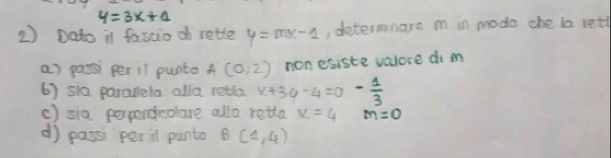 y=3x+1
2) Dato il fascio di rette y=mx-1, determinare m in modo che la rett
a) passi per il punto A (0;2) non esiste valore di m
b) sia parallela alla retta x+3y-4=0 -1/3
c) sia perpendicolare alla retta x=4 m=0
d) passi per il punto B (1,4)